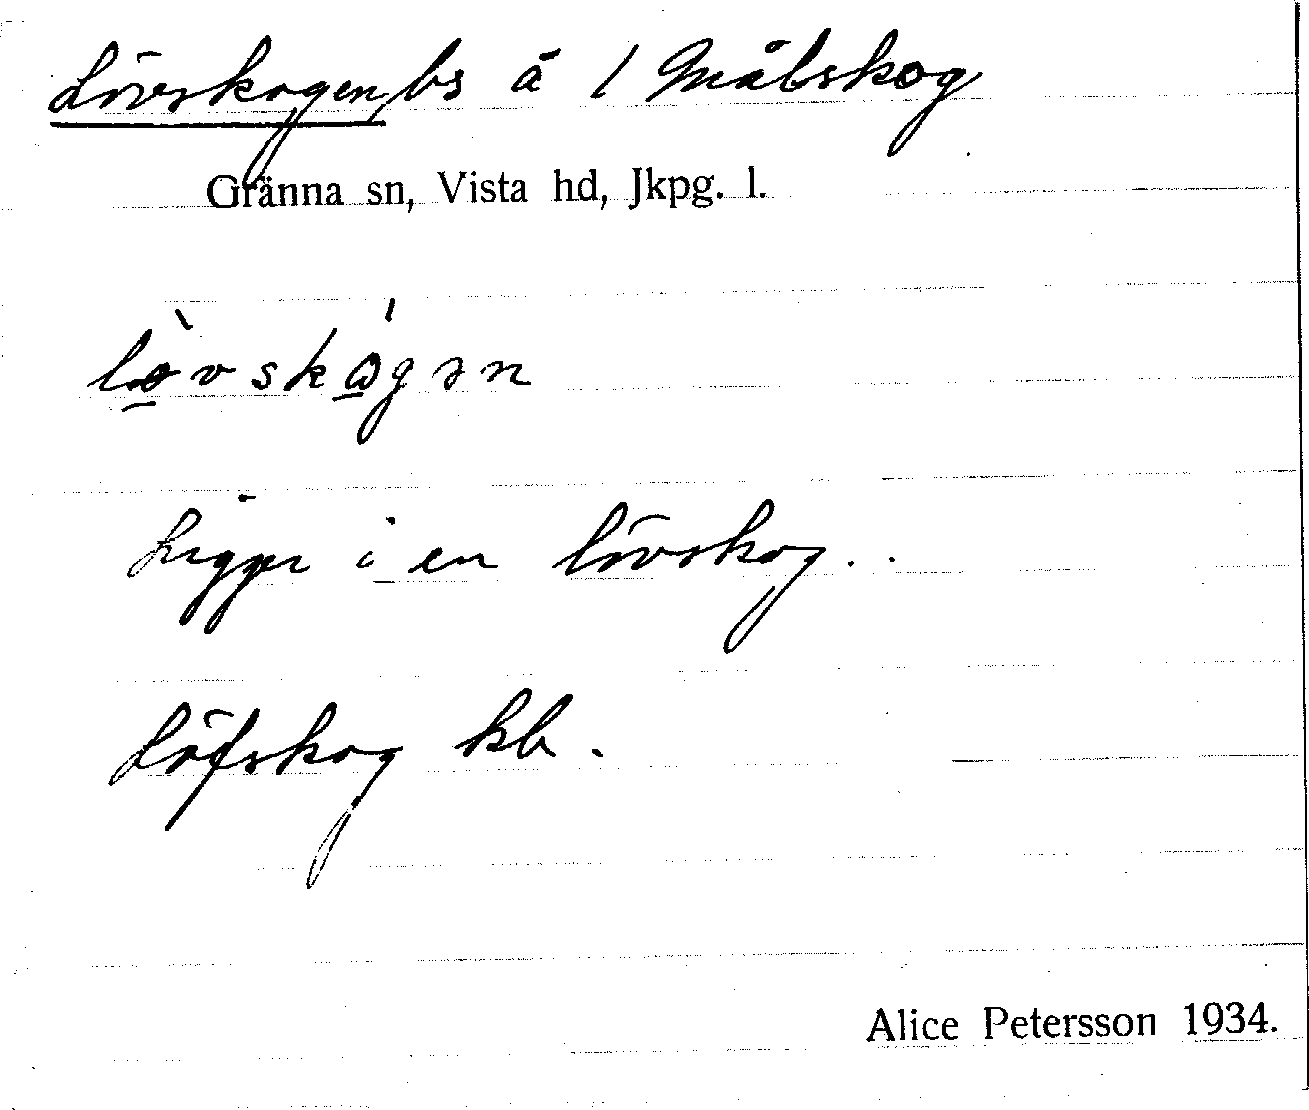 Lövskogen, bs å 1 Målskog
Gränna sn, Vista hd, Jkpg. l.
lø̀vskógən
Ligger i en lövskog.
Löfskog kb.
Alice Petersson 1934.